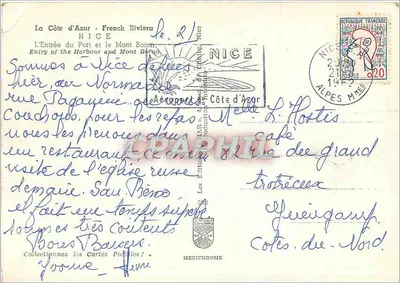 La Côte d'Azur - French Riviera
NICE
L'Entrée du Port et le Mont Boron
Entry of the Harbour and Mont Boron
le 21
NICE
Aéroport Côte d'Azur
REPUBLIQUE FRANÇAISE
POSTES
0,20
NICE
ALPES MMES
Sommes à Nice depuis
hier, au Normandie
rue Paganini
couchons, pour les repas
nous les prenons dans
un restaurant ce matin
visite de l'église russe
demain San Remo
il fait un temps superbe
sommes très contents
Bons Baisers
Yvonne Henri
Melle L'Hostis
Café
rue du grand
trotrieux
Guingamp
Côtes-du-Nord
CPARHIF
Collectionnez les Cartes Postales !
MEXICHROME